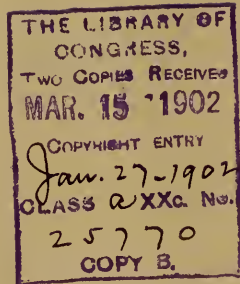 THE LIBRARY OF
CONGRESS,
TWO COPIES RECEIVED
MAR. 15 1902
COPYRIGHT ENTRY
Jan. 27-1902
CLASS a XXc. No.
25770
COPY B.